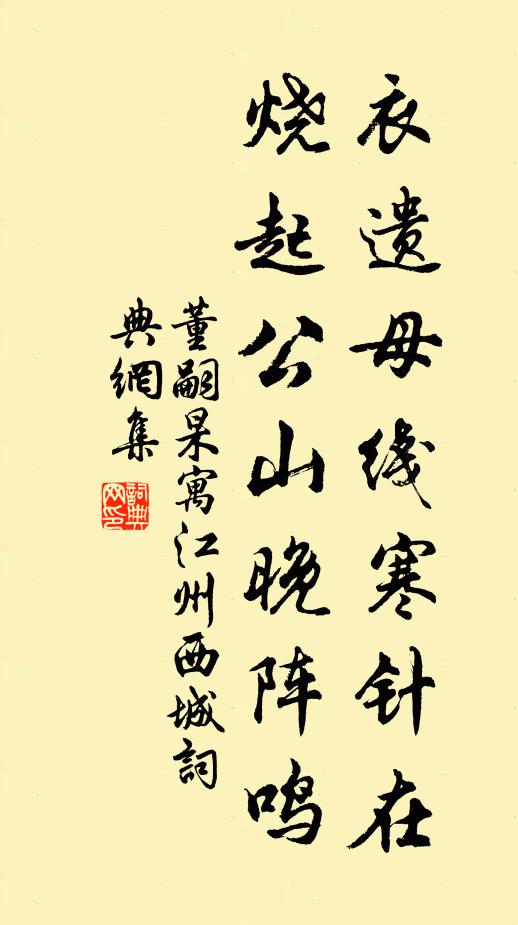 衣遗母线寒针在
烧起公山晚阵鸣
董嗣杲寓江州西城詞
典網集
詞典网印